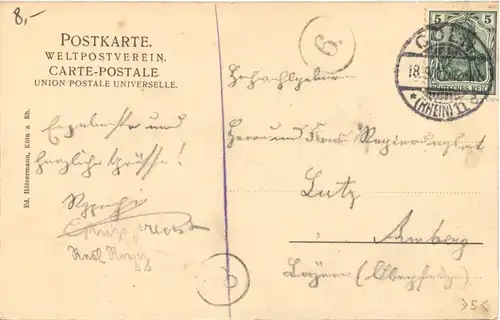 8,-
POSTKARTE.
WELTPOSTVEREIN.
CARTE-POSTALE
UNION POSTALE UNIVERSELLE.
Ed. Hölzermann, Köln a Rh.
und
herzliche Grüsse!
6.
5 5
DEUTSCHES REICH
CÖLN
18.
* (RHEIN) 11
Hochwohlgeboren
Herrn und Frau Regierungsrat
Lutz
Amberg
Bayern (Oberpfalz)
>5<